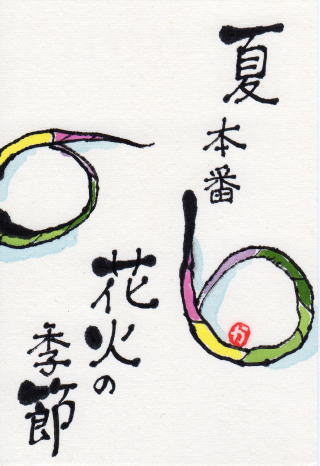 夏本番
花火の
季節
か